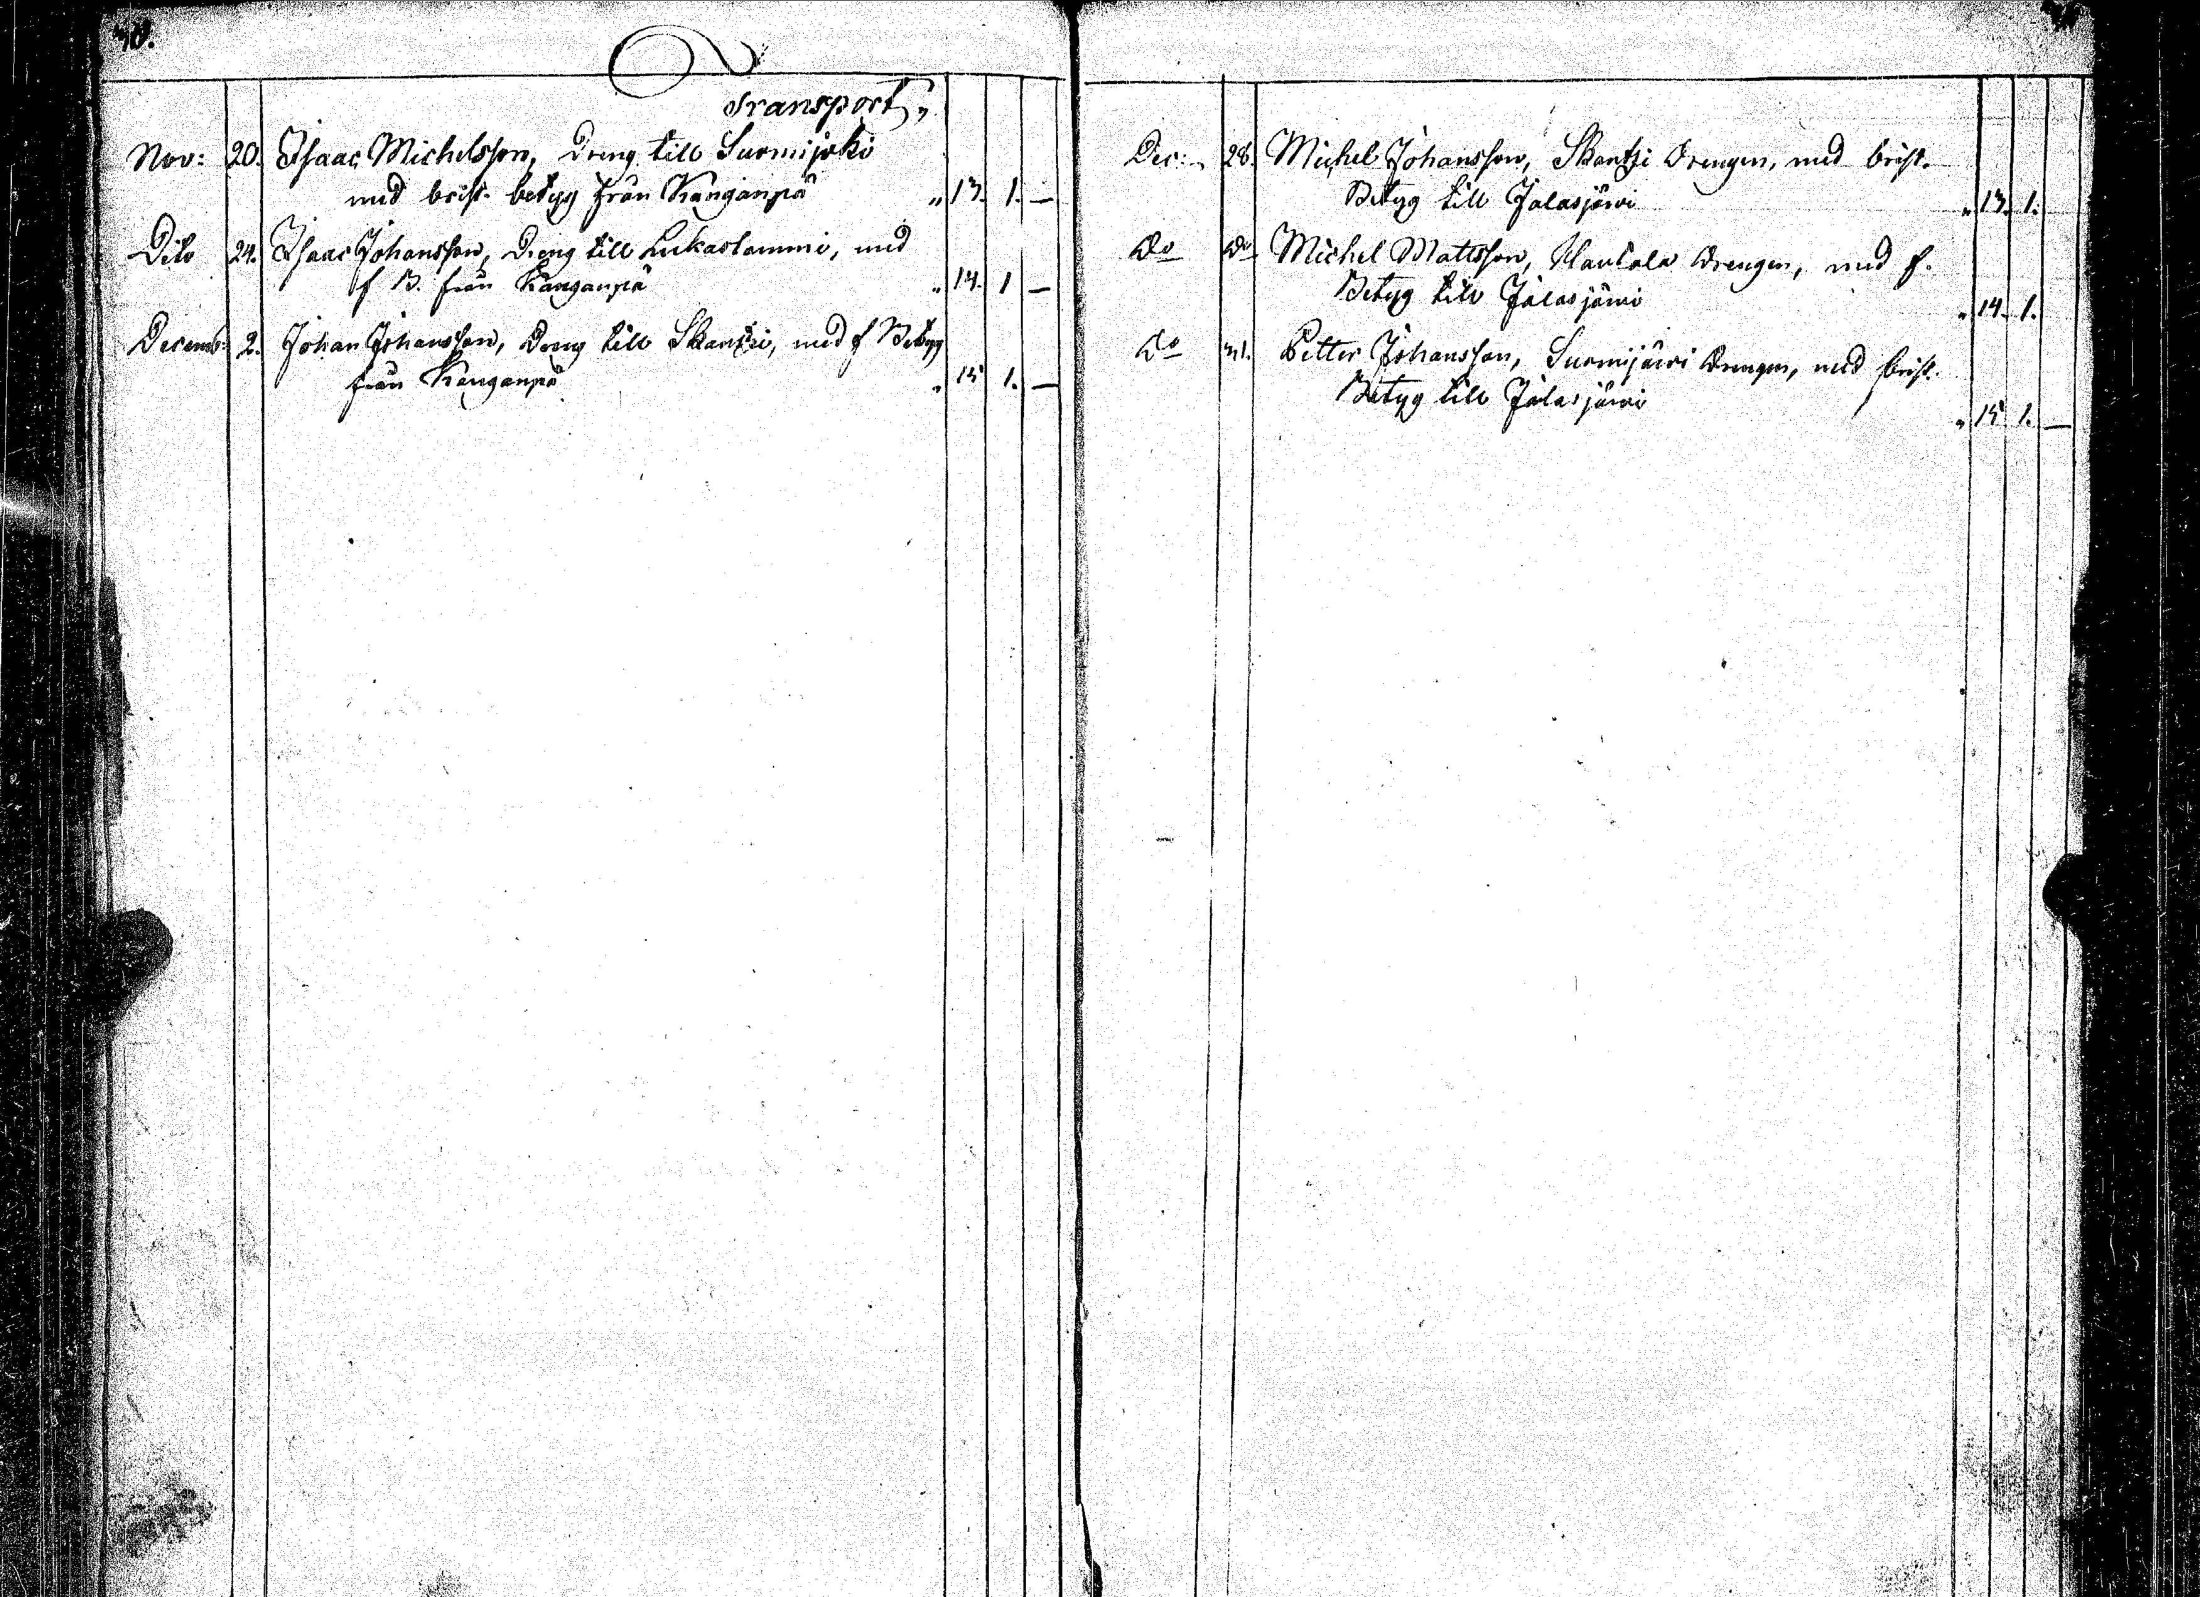 Transport "
Nov: 20. Isaac Michelsson, Dreng till Suomijoki
med brist. betyg från Kanganpä " 13. 1. —
Dito 24. Isaac Johansson, Dreng till Lukaslammi, med
f B. från Kanganpä " 14. 1 —
Decemb: 2. Johan Johansson, Dreng till Skantzi, med f Betyg
från Kanganpä " 15 1. —
Dec: 28. Michel Johansson, Skantzi Drengen, med brist.
Betyg till Jalasjärvi " 13. 1.
Do Do Michel Mattsson, Hautala Drengen, med f.
Betyg till Jalasjärvi " 14. 1.
Do 31. Petter Johansson, Suomijärvi Drengen, med brist.
Betyg till Jalasjärvi " 15 1. —